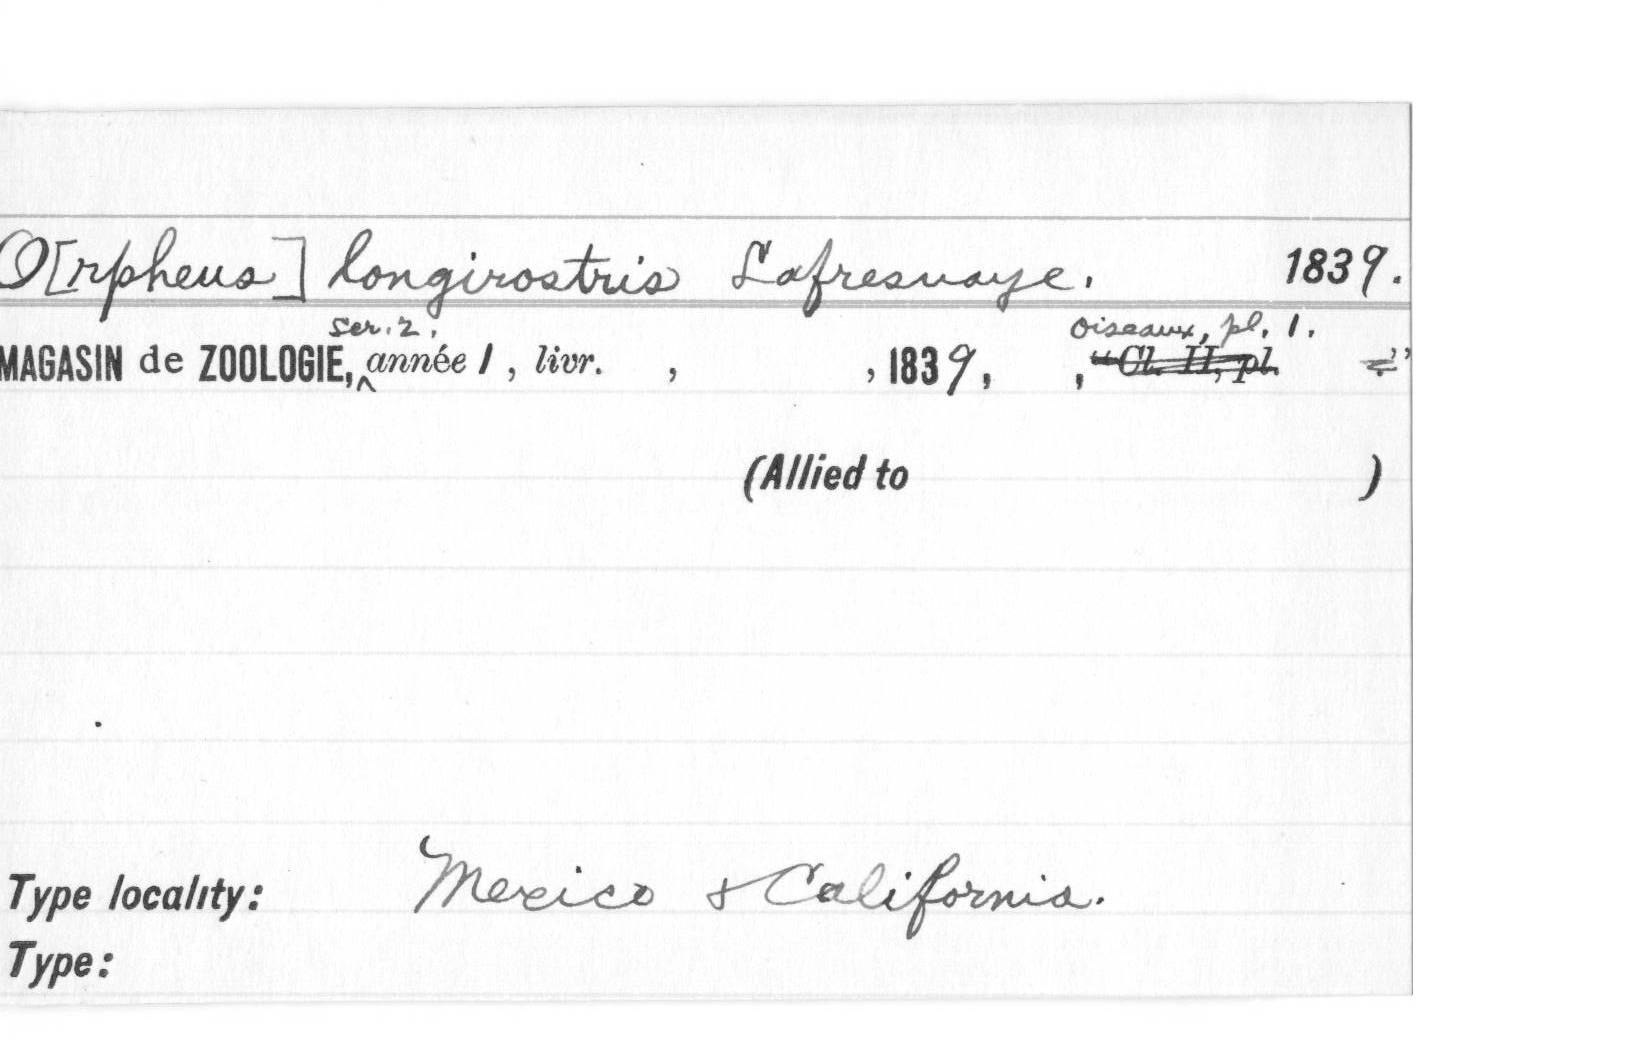 O[rpheus] longirostris Lafresnaye. 1839.
ser. 2. oiseaux, pl. 1.
MAGASIN de ZOOLOGIE, année 1, livr. , , 1839, , "Cl. II, pl. "
(Allied to )
Type locality: Mexico & California.
Type: